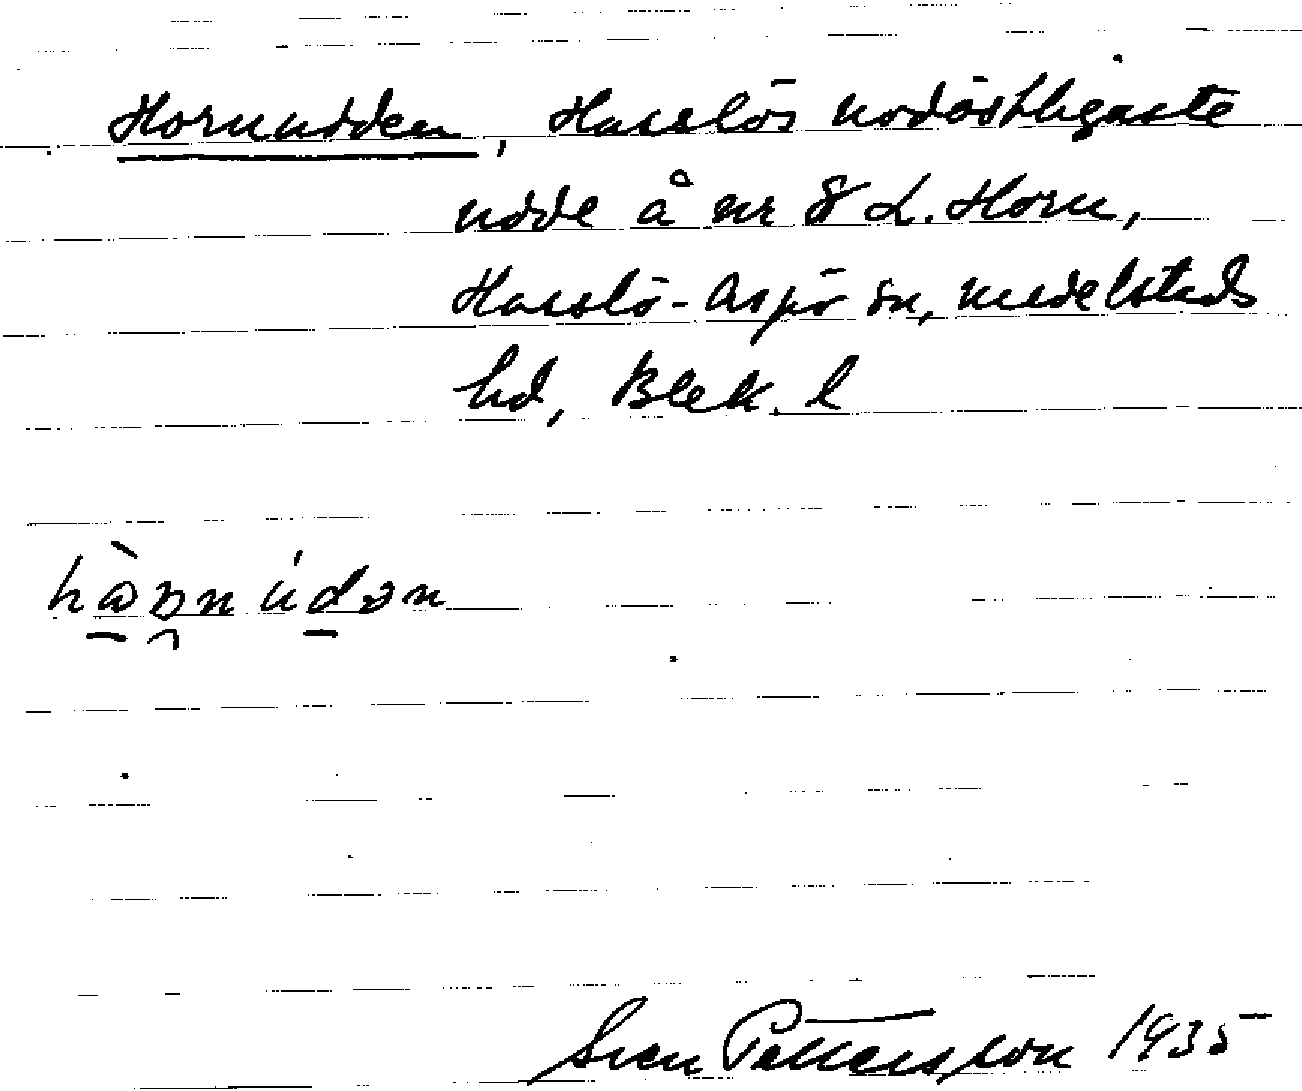 Hornudden, Hasslös nodöstligaste
udde å nr 8 L. Horn,
Hasslö-Aspö sn, Medelstads
hd, Blek. l
Sven Pettersson 1935